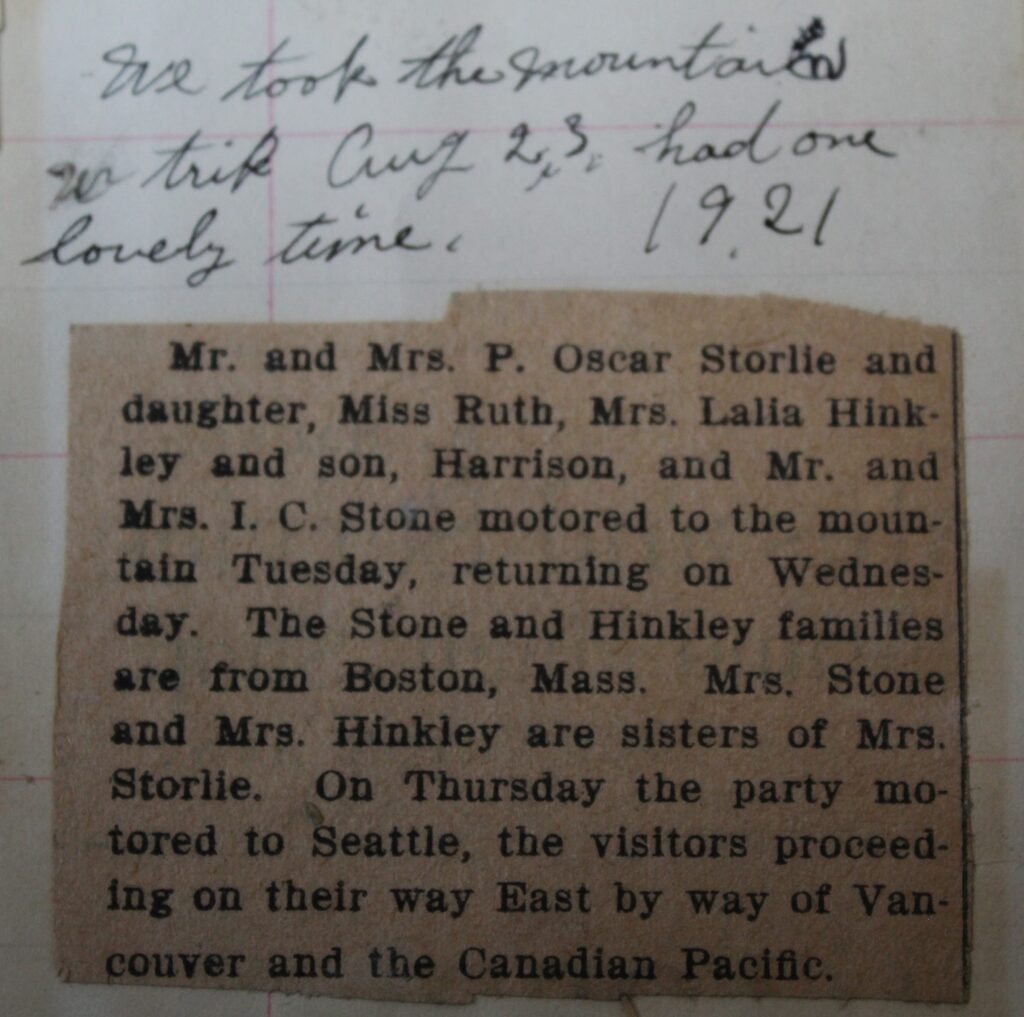 We took the mountain
trip Aug 2,3, had one
lovely time. 1921
Mr. and Mrs. P. Oscar Storlie and
daughter, Miss Ruth, Mrs. Lalia Hink-
ley and son, Harrison, and Mr. and
Mrs. I. C. Stone motored to the moun-
tain Tuesday, returning on Wednes-
day. The Stone and Hinkley families
are from Boston, Mass. Mrs. Stone
and Mrs. Hinkley are sisters of Mrs.
Storlie. On Thursday the party mo-
tored to Seattle, the visitors proceed-
ing on their way East by way of Van-
couver and the Canadian Pacific.